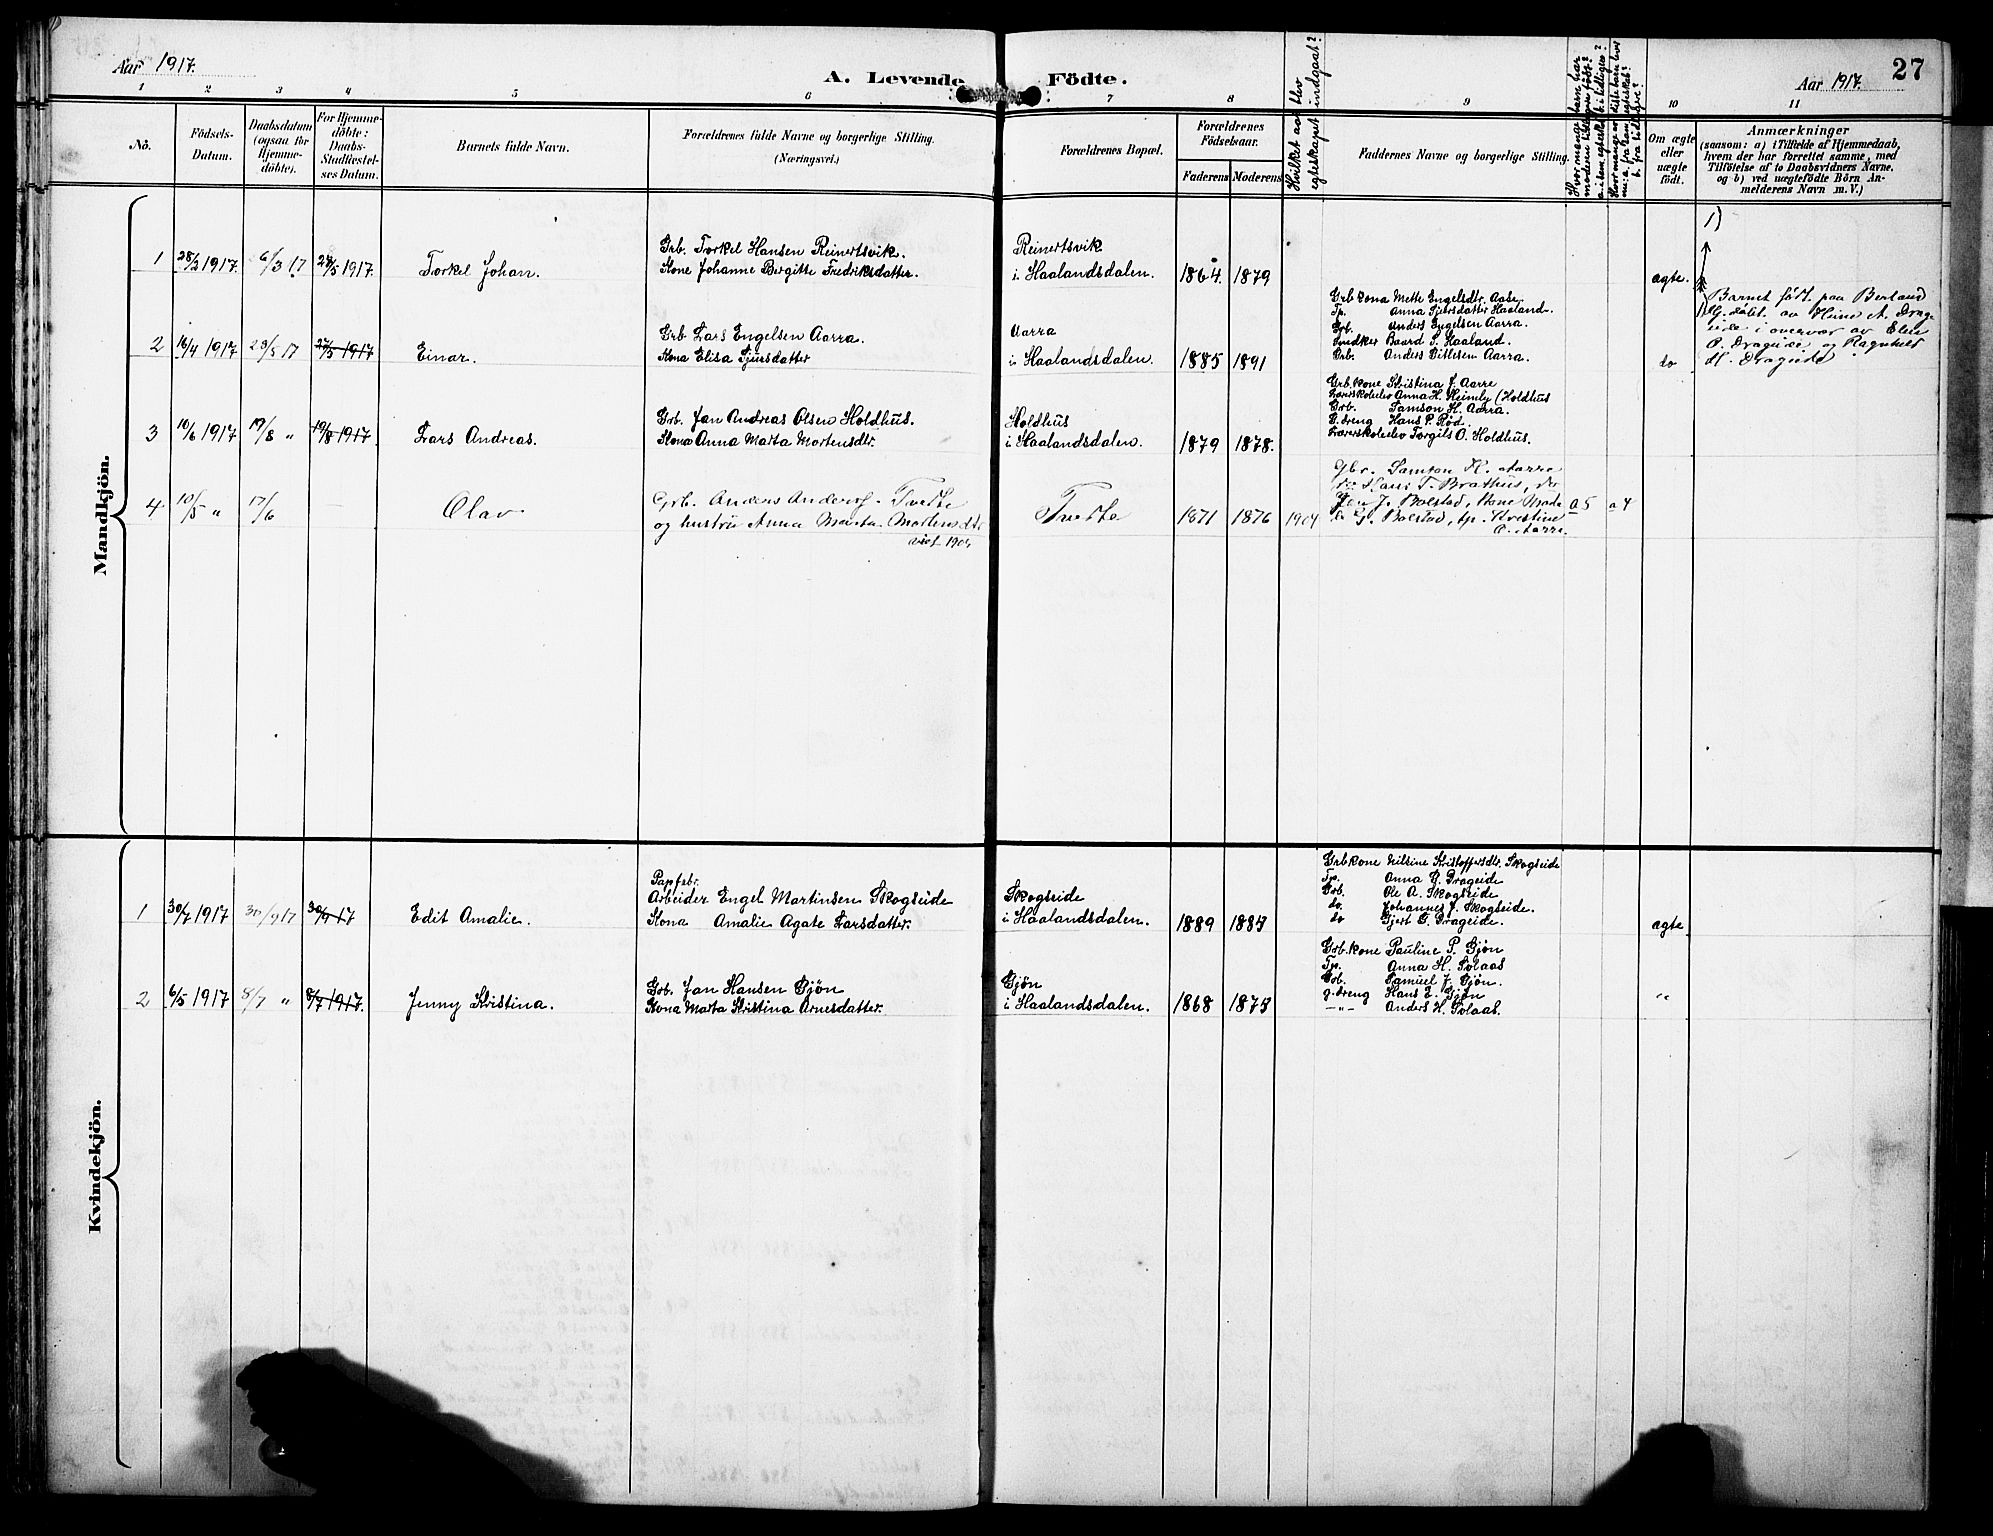 Aar 1917.
A. Levende Födte.
Aar 1917.
27
1 2 3 4 5 6 7 8 9 10 11
No.
Födsels-
Datum.
Daabsdatum
(ogsaa for
Hjemme-
döbte).
For Hjemme-
döbte:
Daabs-
Stadfæstel-
ses Datum.
Barnets fulde Navn.
Forældrenes fulde Navne og borgerlige Stilling.
(Næringsvei.)
Forældrenes Bopæl.
Forældrenes
Födselsaar.
Faderens
Moderens
Hvilket aar blev
egteskapet indgaat?
Faddernes Navne og borgerlige Stilling.
Hvor mange barn har
moderen tidligere født?
a. i dette egteskab? b. tidligere?
Om ægte
eller
uægte
födt.
Anmærkninger
(saasom: a) i Tilfælde af Hjemmedaab,
hvem der har forrettet samme, med
Tilföielse af to Daabsvidners Navne,
og b) ved uægtefödte Börn An-
melderens Navn m. V.)
Mandkjön.
1 28/2 1917. 6/3 17. 28/5 1917. Torkel Johan.
Grb. Torkel Hansen Reinertsvik.
Kone Johanne Bergitte Fredriksdatter.
Reinertsvik
i Haalandsdalen.
1864. 1879
ægte.
1)
Barnet født paa Berland
Hj.døbt av Heine A. Drage
eide i overvær av Elen
O. Drageide og Ragnhild
H. Drageide
2 16/4 1917 28/5 17 27/5 1917 Einar.
Grb Lars Engelsen Aarra.
Kona Elisa Tjuesdatter
Aarra
i Haalandsdalen.
1885 1891
Grb.kona Mette Engelsdtr. Aase.
Tp. Anna Sjursdatter Haaland.
Grb. Anders Engelsen Aarra.
Snidker Baard S. Haaland.
Grb. Anders Ditlesen Aarra.
do
3 10/6 1917 19/8 " 19/8 1917. Lars Andreas.
Grb. Jan Andreas Olsen Holdhus.
Kona Anna Marta Mortensdtr.
Holdhus
i Haalandsdalen.
1879 1878.
Grb.kone Kristina J. Aarre
Lærerskoleelev Anna H. Heimly (Holdhus
Grb. Samson H. Aarra.
G.dreng Hans P. Rød.
Lærerskoleelev Torgils O. Holdhus.
4 10/5 " 17/6 — Olav
Grb. Anders Andersf. Tveite
og hustru Anna Marta Mortensdtr
viet 1904
Tveite
1871 1876 1904
Gbr. Samson H. Aarre
do Hans T. Brathus, do
Jan J. Bolstad, Kone Marta
J. Bolstad, tp. Kristine
O. Aarre.
a 5 a 4
Kvindekjön.
1 30/7 1917 30/9 17 30/9 17 Edit Amalie.
Papfabr.
Arbeider Engel Martinsen Skogseide
Kona Amalie Agate Larsdatter.
Skogseide
i Haalandsdalen.
1889 1887
Grbkone Nilsine Kristoffersdtr. Skogseide
Tp. Anna G. Drageide
Grb. Ole A. Skogseide
do. Johannes J. Skogseide.
do Gjert G. Drageide.
ægte
2 6/5 1917 8/7 " 8/7 1917. Jenny Kristina.
Grb. Jan Hansen Gjøn
Kona Marta Kristina Arnesdatter.
Gjøn
i Haalandsdalen.
1868 1875
Grb.kone Pauline P. Gjøn
Tp. Anna H. Solaas
Grb. Samuel J. Gjøn.
g.dreng Hans L. Gjøn
—"— Anders H. Solaas.
"